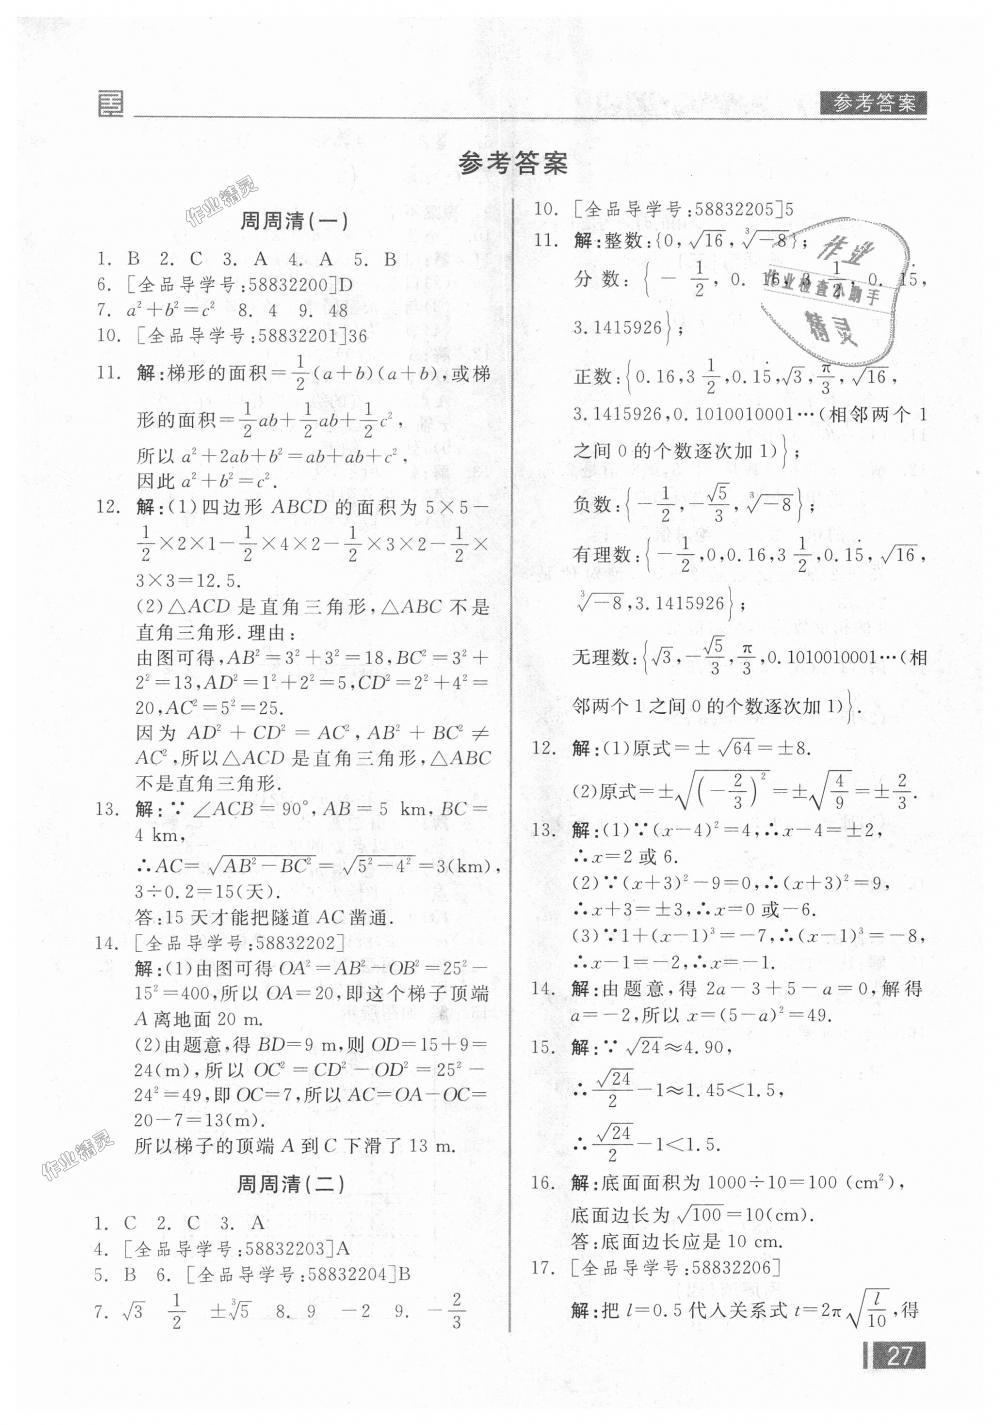 参考答案
参考答案
周周清(一)
1. B 2. C 3. A 4. A 5. B
6. [全品导学号:58832200]D
7. a²+b²=c² 8. 4 9. 48
10. [全品导学号:58832201]36
11. 解:梯形的面积=1/2(a+b)(a+b),或梯
形的面积=1/2ab+1/2ab+1/2c²,
所以 a²+2ab+b²=ab+ab+c²,
因此 a²+b²=c².
12. 解:(1)四边形 ABCD 的面积为 5×5-
1/2×2×1-1/2×4×2-1/2×3×2-1/2×
3×3=12.5.
(2)△ACD 是直角三角形,△ABC 不是
直角三角形.理由:
由图可得,AB²=3²+3²=18,BC²=3²+
2²=13,AD²=1²+2²=5,CD²=2²+4²=
20,AC²=5²=25.
因为 AD²+CD²=AC²,AB²+BC²≠
AC²,所以△ACD 是直角三角形,△ABC
不是直角三角形.
13. 解:∵∠ACB=90°,AB=5 km,BC=
4 km,
∴AC=√(AB²-BC²)=√(5²-4²)=3(km),
3÷0.2=15(天).
答:15 天才能把隧道 AC 凿通.
14. [全品导学号:58832202]
解:(1)由图可得 OA²=AB²-OB²=25²-
15²=400,所以 OA=20,即这个梯子顶端
A 离地面 20 m.
(2)由题意,得 BD=9 m,则 OD=15+9=
24(m),所以 OC²=CD²-OD²=25²-
24²=49,即 OC=7,所以 AC=OA-OC=
20-7=13(m).
所以梯子的顶端 A 到 C 下滑了 13 m.
周周清(二)
1. C 2. C 3. A
4. [全品导学号:58832203]A
5. B 6. [全品导学号:58832204]B
7. √3 1/2 ±∛5 8. 9 -2 9. -2/3
10. [全品导学号:58832205]5
11. 解:整数:{0,√16,∛-8};
分数:{-1/2,0.16,3 1/2,0.15̇,
3.1415926};
正数:{0.16,3 1/2,0.15̇,√3,π/3,√16,
3.1415926,0.1010010001…(相邻两个 1
之间 0 的个数逐次加 1)};
负数:{-1/2,-√5/3,∛-8};
有理数:{-1/2,0,0.16,3 1/2,0.15̇,√16,
∛-8,3.1415926};
无理数:{√3,-√5/3,π/3,0.1010010001…(相
邻两个 1 之间 0 的个数逐次加 1)}.
12. 解:(1)原式=±√64=±8.
(2)原式=±√((-2/3)²)=±√(4/9)=±2/3.
13. 解:(1)∵(x-4)²=4,∴x-4=±2,
∴x=2 或 6.
(2)∵(x+3)²-9=0,∴(x+3)²=9,
∴x+3=±3,∴x=0 或-6.
(3)∵1+(x-1)³=-7,∴(x-1)³=-8,
∴x-1=-2,∴x=-1.
14. 解:由题意,得 2a-3+5-a=0,解得
a=-2,所以 x=(5-a)²=49.
15. 解:∵√24≈4.90,
∴√24/2-1≈1.45<1.5,
∴√24/2-1<1.5.
16. 解:底面面积为 1000÷10=100 (cm²),
底面边长为√100=10(cm).
答:底面边长应是 10 cm.
17. [全品导学号:58832206]
解:把 l=0.5 代入关系式 t=2π√(l/10),得
27
作业精灵
作业精灵
作业
作业检查小助手
精灵